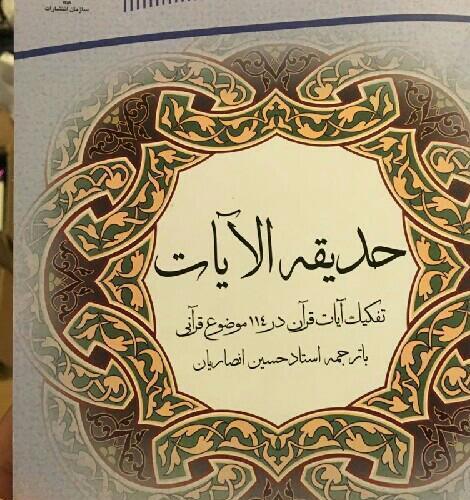 سازمان انتشارات
حدیقه الآیات
تفکیک آیات قرآن در ۱۱۴ موضوع قرآنی
با ترجمه استاد حسین انصاریان